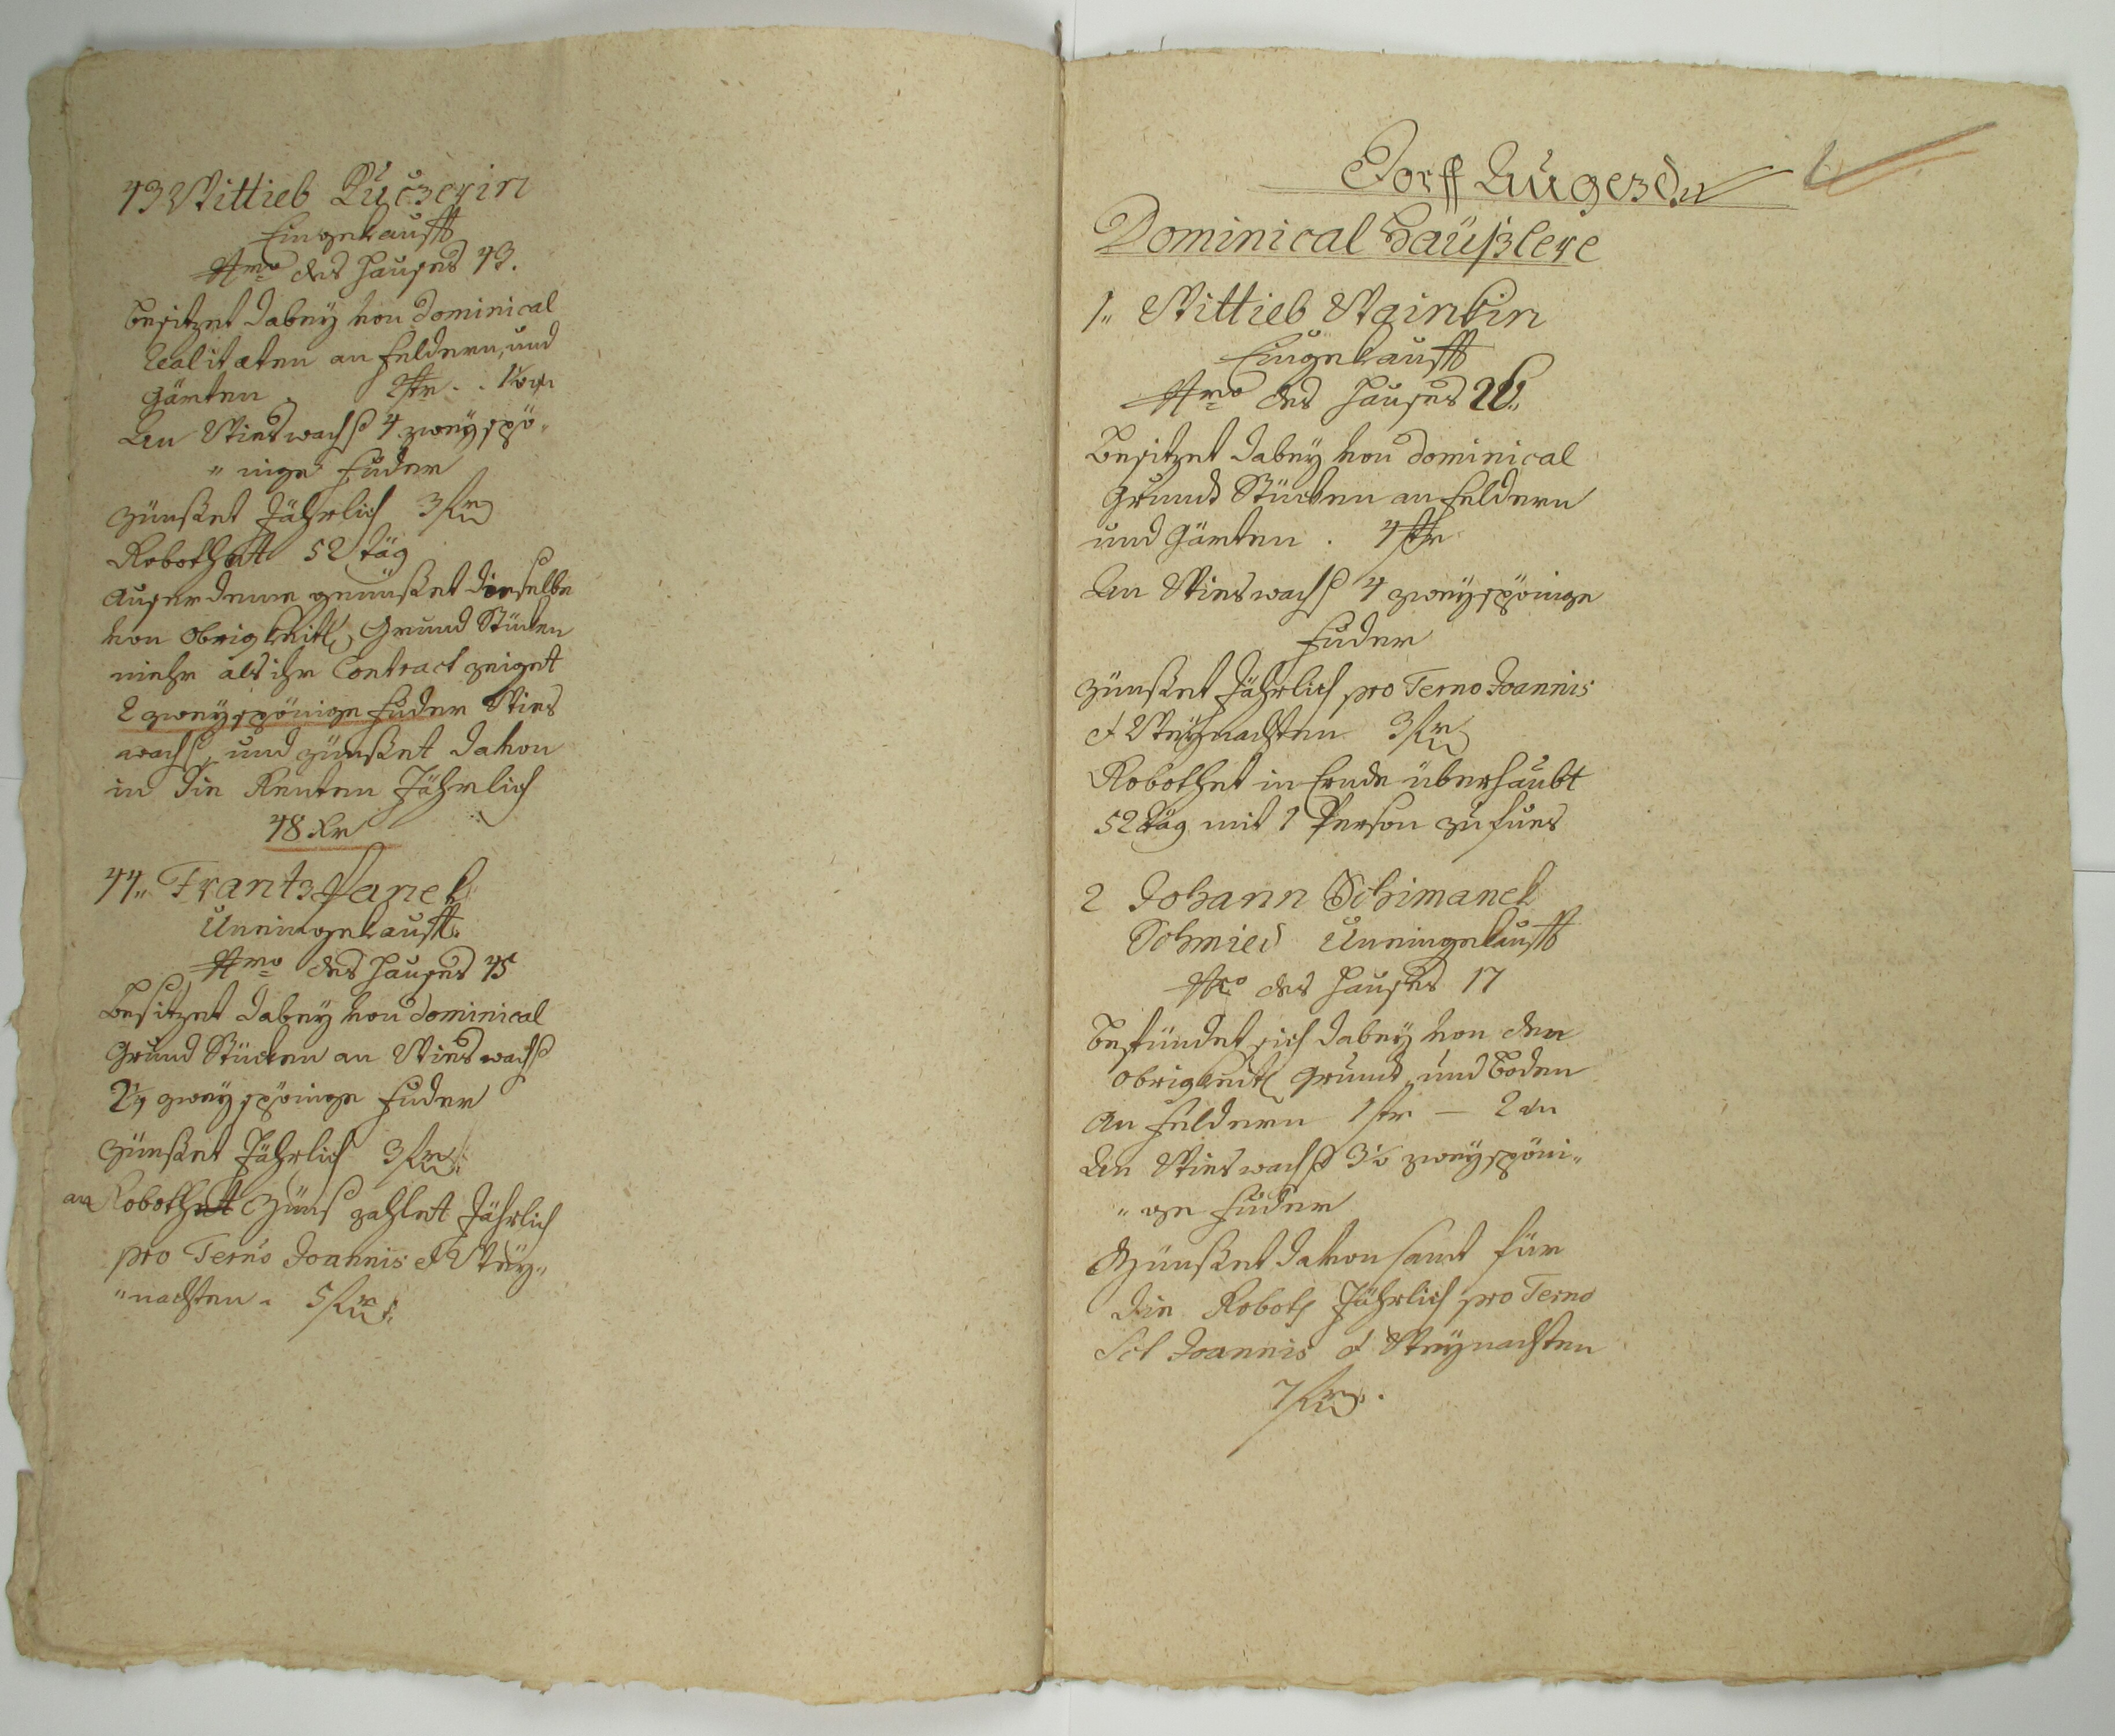 43 Wittieb Kučzerin
Eingekaufft
Nro des Hauses 43.
Besitzet dabey von Dominical
Realitæten an Feldern, und
Gärten . 2 str. .
An Wieswachß 4 zweyspö„
„nige Fuder
Zünßet Jährlich 3
Robothet 52 täg
Auserdeme genüßet dieselbe
von Obrigkeitl. Grund Stücken
mehr als ihr Contract zeiget
2 zweyspönige Fuder Wies
wachß, und zünßet davon
in die Renten Jährlich
48 Kr
44„ Frantz Janek
Uneingekaufft.
Nro des Hauses 45
Besitzet dabey von Dominical
Grund Stücken an Wieswachß
zweyspönige Fuder
Zünßet Jährlich 3
an Roboth Zünß zahlet Jährlich
pro Termo Joannis et Wey„
„nachten. 5
Dorff Augezdu
Dominical Häußlere
1„ Wittieb Wainkin
Eingekaufft
Nro des Hauses
Besitzet dabey von Dominical
Grund Stücken an Feldern
und Gärten . 4 str
An Wieswachß 4 zweyspönige
Fuder
Zünßet Jährlich pro Termo Joannis
et Weynachten 3
Robothet in Ernde überhaubt
52 täg mit 1 Person zu fues
2 Johann Schimanek
Schmied Uneingekaufft
Nro des Hauses 17
Befündet sich dabey von den
Obrigkeitl Grund und Boden
An Feldern 1 str — 2
An Wieswachß 3½ zweyspöni„
„ge Fuder
Zünßet davon samt für
die Roboth Jährlich pro Termo
Sct Joannis et Weynachten
7